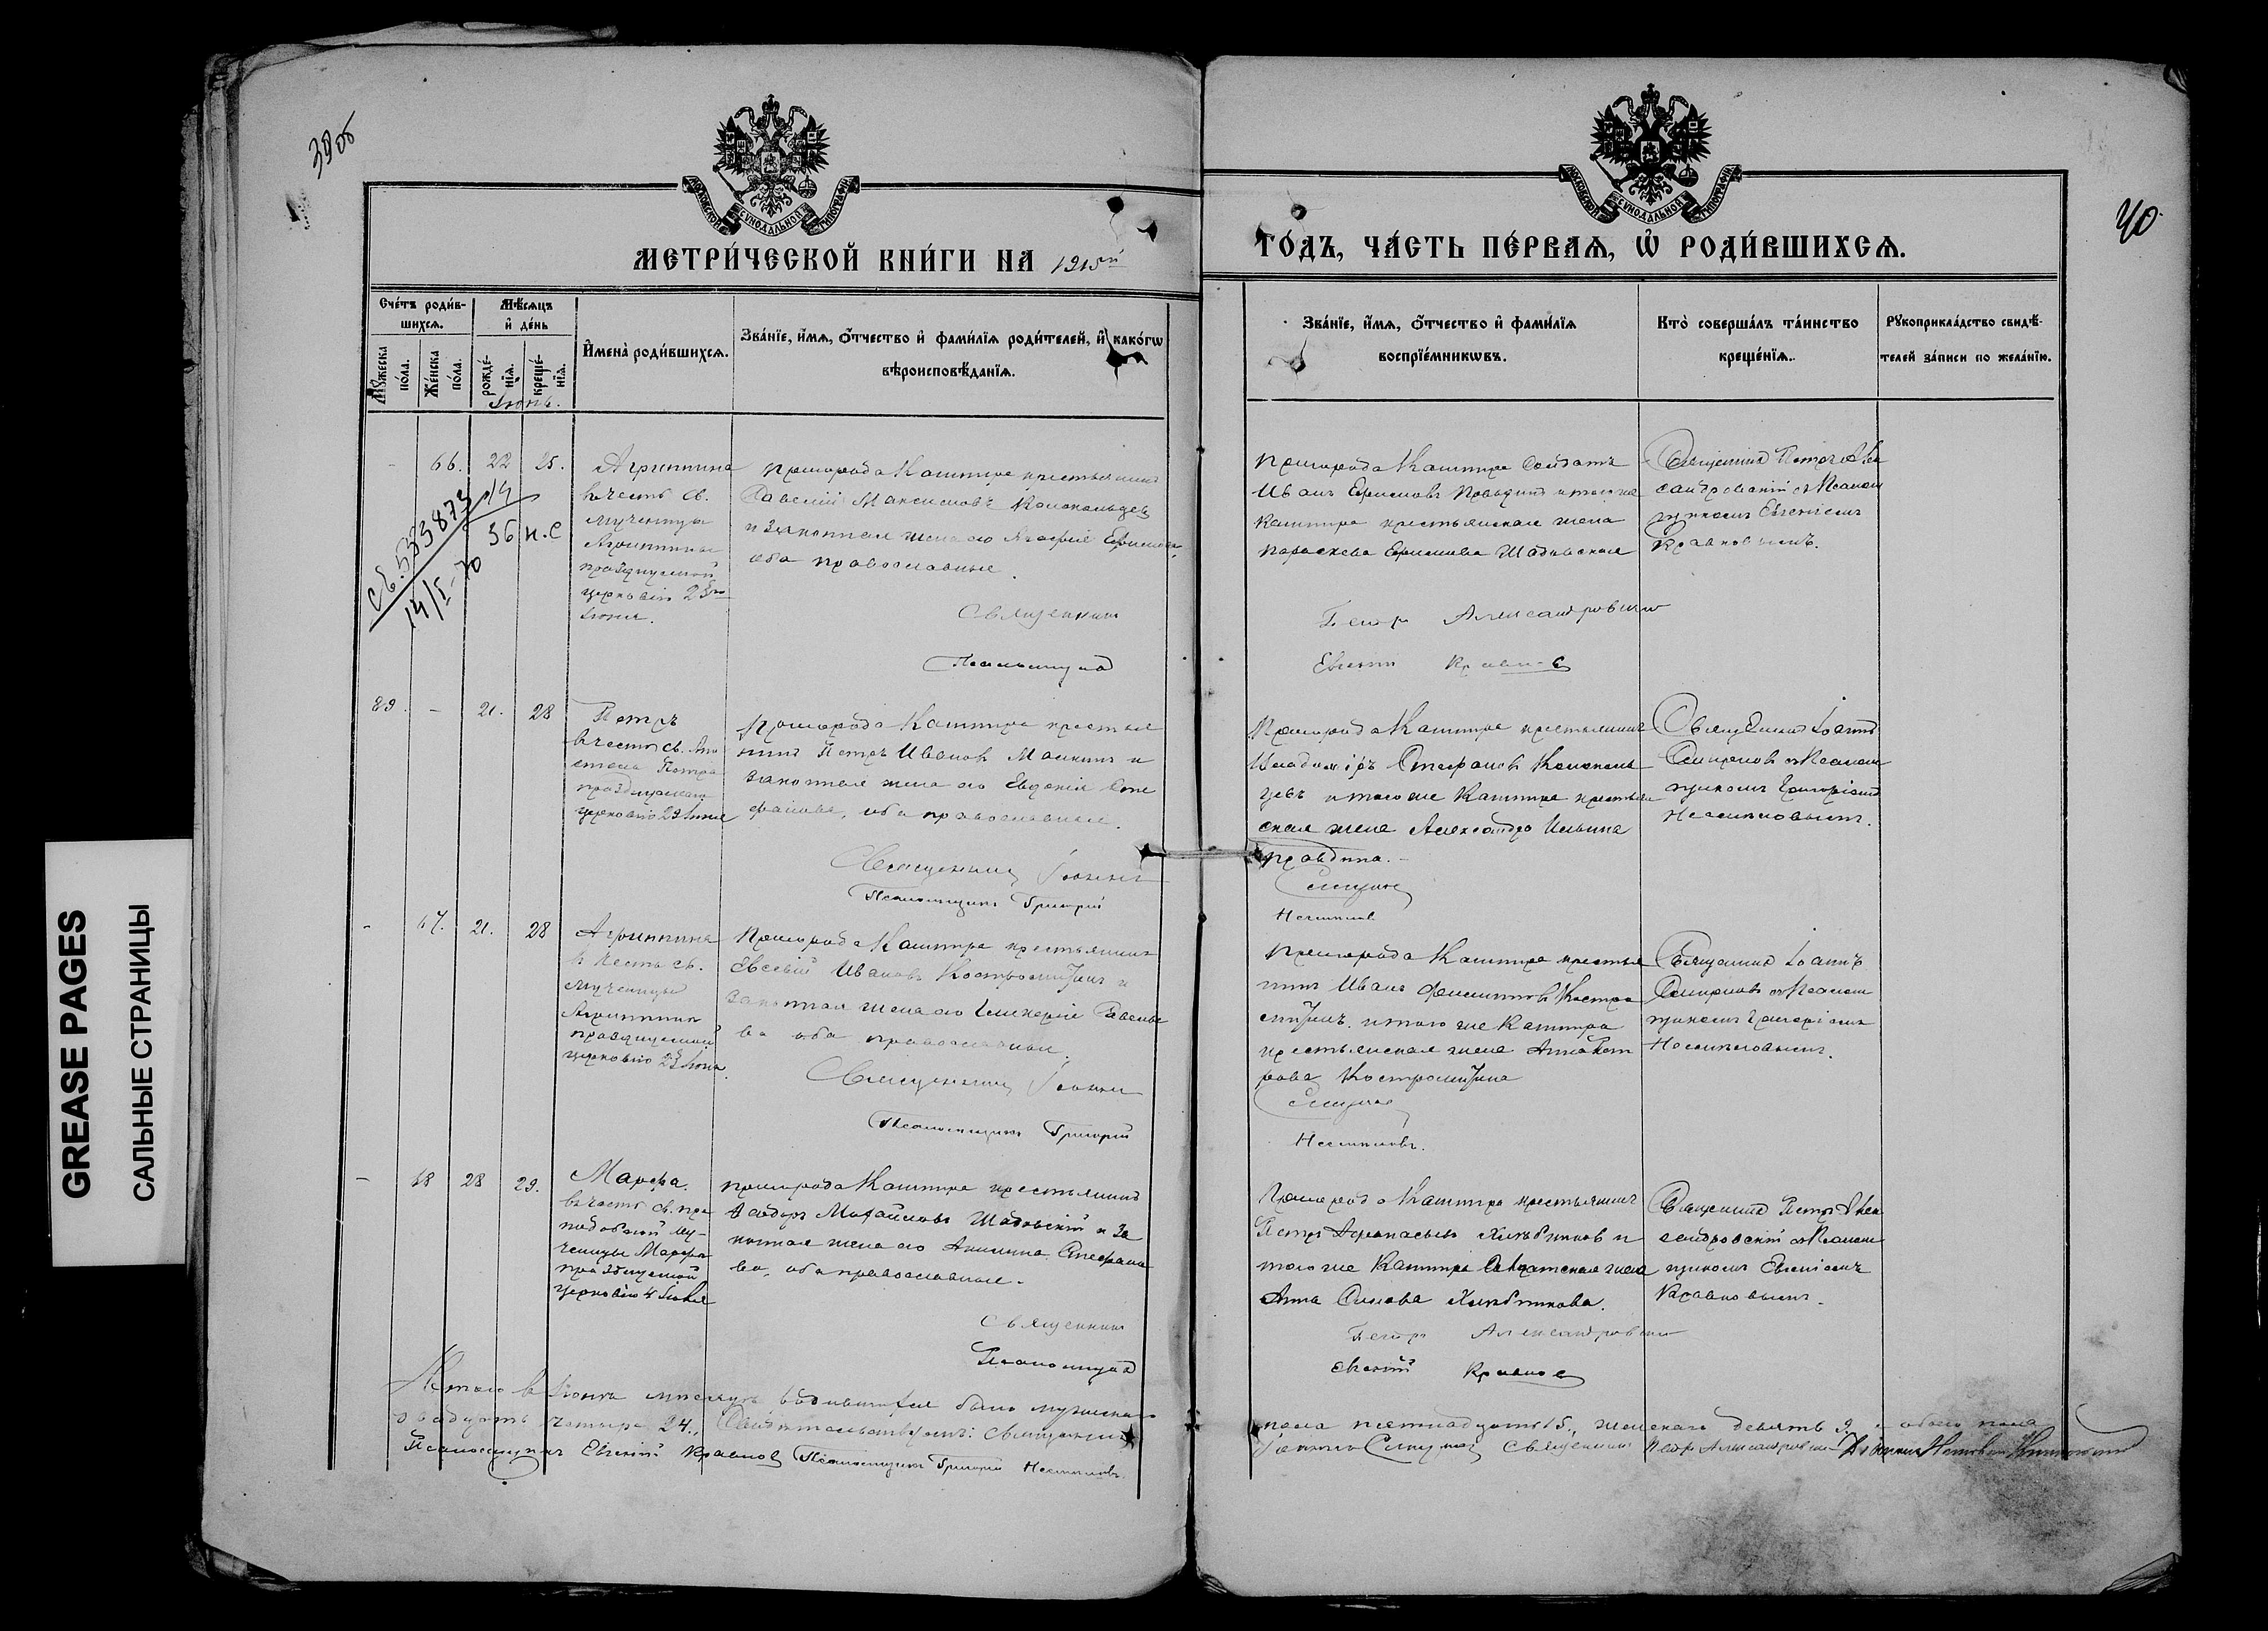 39 об
40
МЕТРИ́ЧЕСКОЙ КНИ́ГИ НА 1915й
ГО́ДЪ, ЧА́СТЬ ПЕ́РВАѦ, Ѡ҆ РОДИ́ВШИХСѦ.
Сче́тъ роди́в-
шихсѧ.
Мѣ́сѧцъ
и҆ де́нь
И҆мена̀ роди́вшихсѧ.
Зва́нїе, и҆́мѧ, ѻ҆́тчество и҆ фами́лїѧ роди́телей, и҆ како́гѡ
вѣроисповѣ́данїѧ.
Мꙋ́жеска
по́ла.
Же́нска
по́ла.
рожде́-
нїѧ.
креще́-
нїѧ.
Іюнь.
Зва́нїе, и҆́мѧ, ѻ҆́тчество и҆ фами́лїѧ
воспрїе́мникѡвъ.
Кто̀ соверша́лъ та́инство
креще́нїѧ.
Рꙋкоприкла́дство свидѣ́-
телей за́писи по жела́нїю.
- 66. 22 25.
Агриппина
въ честь св.
мученицы
Агриппины
празднуемой
церковію 23го
Іюня.
пригорода Каштира крестьянинъ
Савелій Максимовъ Колокольцев
и законная жена его
оба православные.
Священникъ
Псаломщикъ
пригорода Каштира Солдатъ
Иванъ Ефимовъ и того же
Каштира крестьянская жена
Параскева Ефимова Шадовская
Петръ Александровскій
Евгеній Кравков
Священникъ Петръ Алек
сандровскій съ Псалом
щикомъ Евгеніемъ
Кравковымъ.
св. 533873
14/I-70
36 н.с
89. - 21. 28
Петръ
въ честь св. Апо
стола Петра
празднуемаго
церковію 29 Іюня
Пригорода Каштира крестья
нинъ Петръ Иванов Маскинъ и
законная жена его Евдокія Сте
фанова, оба православные.
Священникъ Іоаннъ
Псаломщикъ Григорій
Пригорода Каштира крестьянинъ
Владиміръ Стефанов Колоколь
цевъ и того же Каштира крестьян
ская жена Александра Ильина
Правдина.
Смирнов
Священникъ Іоаннъ
Смирновъ съ Псалом
щикомъ Григоріемъ
- 67. 21. 28
Агриппина
въ честь св.
мученицы
Агриппины
празднуемой
церковію 23 Іюня.
Пригорода Каштира крестьянинъ
Евсевій Ивановъ Костромитинъ и
законная жена его Гликерія Савелье
ва оба православные.
Священникъ Іоаннъ
Псаломщикъ Григорій
Пригорода Каштира крестья
нинъ Иванъ Костро
митинъ и того же Каштира
крестьянская жена Анна Пет
рова Костромитина
Смирнов
Священникъ Іоаннъ
Смирновъ съ Псалом
щикомъ Григоріемъ
- 68 28 29.
Марѳа.
въ честь св. пре
подобной му-
ченицы Марѳы
празднуемой
церковію 4 Іюля
пригорода Каштира крестьянинъ
Ѳеодоръ Михайловъ Шадовскій и за
конная жена его Акилина Стефано
ва, оба православные.
Священникъ
Псаломщикъ
Пригорода Каштира крестьянинъ
Петръ Афанасьевъ Хлѣбников и
того же Каштира Солдатская жена
Анна Хлѣбникова.
Петръ Александровскій
Евгеній Кравков
Священникъ Петръ Алек
сандровскій съ Псалом
щикомъ Евгеніемъ
Кравковымъ.
Итого въ Іюнѣ мѣсяцѣ родившихся было мужескаго
пола пятнадцать 15, женскаго девять 9 и обоего пола
двадцать четыре 24. Свидѣтельствуемъ: Священникъ
Іоаннъ Смирнов Священникъ Петръ Александровскій Діаконъ
Псаломщикъ Евгеній Кравков Псаломщикъ Григорій
GREASE PAGES
САЛЬНЫЕ СТРАНИЦЫ